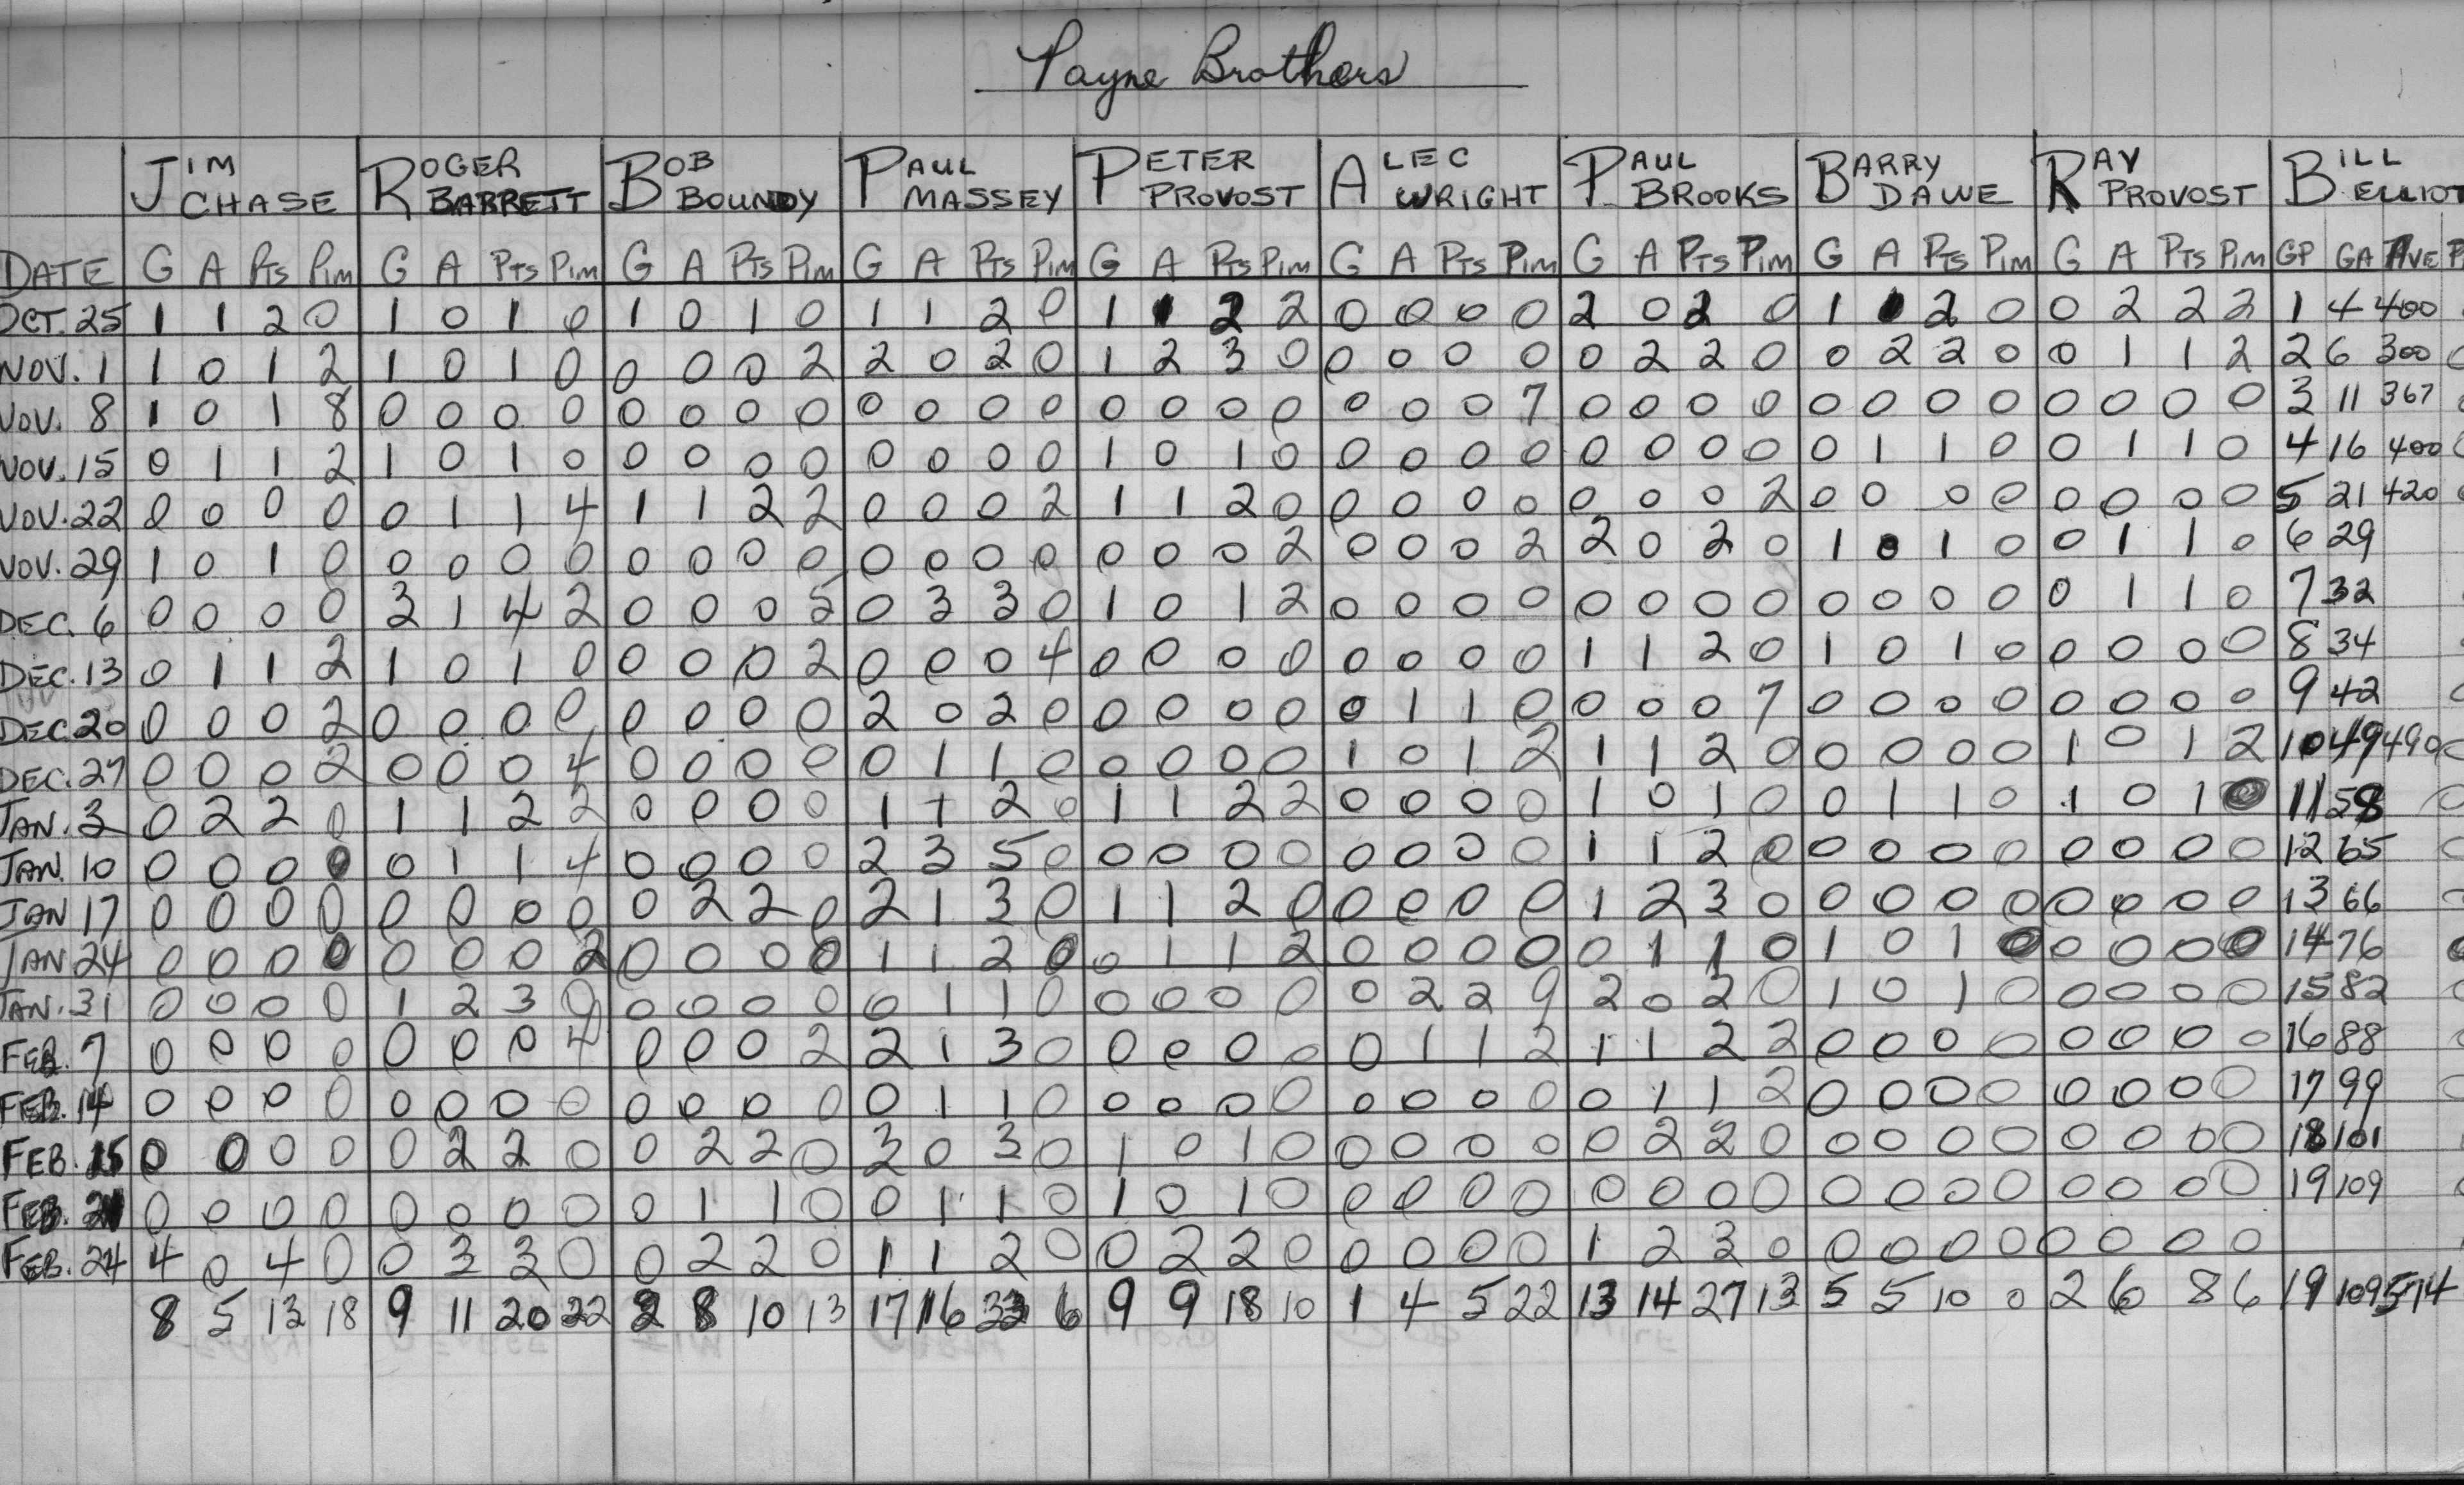 Payne Brothers
JIM CHASE ROGER BARRETT BOB BOUNDY PAUL MASSEY PETER PROVOST ALEC WRIGHT PAUL BROOKS BARRY DAWE RAY PROVOST BILL ELLIOT
DATE G A Pts Pim G A Pts Pim G A Pts Pim G A Pts Pim G A Pts Pim G A Pts Pim G A Pts Pim G A Pts Pim G A Pts Pim GP GA AVE P
OCT. 25 1 1 2 0 1 0 1 0 1 0 1 0 1 1 2 0 1 1 2 2 0 0 0 0 2 0 2 0 1 1 2 0 0 2 2 2 1 4 400
NOV. 1 1 0 1 2 1 0 1 0 0 0 0 2 2 0 2 0 1 2 3 0 0 0 0 0 0 2 2 0 0 2 2 0 0 1 1 2 2 6 300
NOV. 8 1 0 1 8 0 0 0 0 0 0 0 0 0 0 0 0 0 0 0 0 0 0 0 7 0 0 0 0 0 0 0 0 0 0 0 0 3 11 367
NOV. 15 0 1 1 2 1 0 1 0 0 0 0 0 0 0 0 0 1 0 1 0 0 0 0 0 0 0 0 0 0 1 1 0 0 1 1 0 4 16 400
NOV. 22 0 0 0 0 0 1 1 4 1 1 2 2 0 0 0 2 1 1 2 0 0 0 0 0 0 0 0 2 0 0 0 0 0 0 0 0 5 21 420
NOV. 29 1 0 1 0 0 0 0 0 0 0 0 0 0 0 0 0 0 0 0 2 0 0 0 2 2 0 2 0 1 0 1 0 0 1 1 0 6 29
DEC. 6 0 0 0 0 3 1 4 2 0 0 0 5 0 3 3 0 1 0 1 2 0 0 0 0 0 0 0 0 0 0 0 0 0 1 1 0 7 32
DEC. 13 0 1 1 2 1 0 1 0 0 0 0 2 0 0 0 4 0 0 0 0 0 0 0 0 1 1 2 0 1 0 1 0 0 0 0 0 8 34
DEC. 20 0 0 0 2 0 0 0 0 0 0 0 0 2 0 2 0 0 0 0 0 0 1 1 0 0 0 0 7 0 0 0 0 0 0 0 0 9 42
DEC. 27 0 0 0 2 0 0 0 4 0 0 0 0 0 1 1 0 0 0 0 0 1 0 1 2 1 1 2 0 0 0 0 0 1 0 1 2 10 49 490
JAN. 3 0 2 2 0 1 1 2 2 0 0 0 0 1 1 2 0 1 1 2 2 0 0 0 0 1 0 1 0 0 1 1 0 1 0 1 0 11 58
JAN. 10 0 0 0 0 0 1 1 4 0 0 0 0 2 3 5 0 0 0 0 0 0 0 0 0 1 1 2 0 0 0 0 0 0 0 0 0 12 65
JAN 17 0 0 0 0 0 0 0 0 0 2 2 0 2 1 3 0 1 1 2 0 0 0 0 0 1 2 3 0 0 0 0 0 0 0 0 0 13 66
JAN. 24 0 0 0 0 0 0 0 2 0 0 0 0 1 1 2 0 0 1 1 2 0 0 0 0 0 1 1 0 1 0 1 0 0 0 0 0 14 76
JAN. 31 0 0 0 0 1 2 3 0 0 0 0 0 0 1 1 0 0 0 0 0 0 2 2 9 2 0 2 0 1 0 1 0 0 0 0 0 15 82
FEB. 7 0 0 0 0 0 0 0 4 0 0 0 2 2 1 3 0 0 0 0 0 0 1 1 2 1 1 2 2 0 0 0 0 0 0 0 0 16 88
FEB. 14 0 0 0 0 0 0 0 0 0 0 0 0 0 1 1 0 0 0 0 0 0 0 0 0 0 1 1 2 0 0 0 0 0 0 0 0 17 99
FEB. 15 0 0 0 0 0 2 2 0 0 2 2 0 3 0 3 0 1 0 1 0 0 0 0 0 0 2 2 0 0 0 0 0 0 0 0 0 18 101
FEB. 21 0 0 0 0 0 0 0 0 0 1 1 0 0 1 1 0 1 0 1 0 0 0 0 0 0 0 0 0 0 0 0 0 0 0 0 0 19 109
FEB. 24 4 0 4 0 0 3 3 0 0 2 2 0 1 1 2 0 0 2 2 0 0 0 0 0 1 2 3 0 0 0 0 0 0 0 0 0
8 5 13 18 9 11 20 22 2 8 10 13 17 16 33 6 9 9 18 10 1 4 5 22 13 14 27 13 5 5 10 0 2 6 8 6 19 109 574